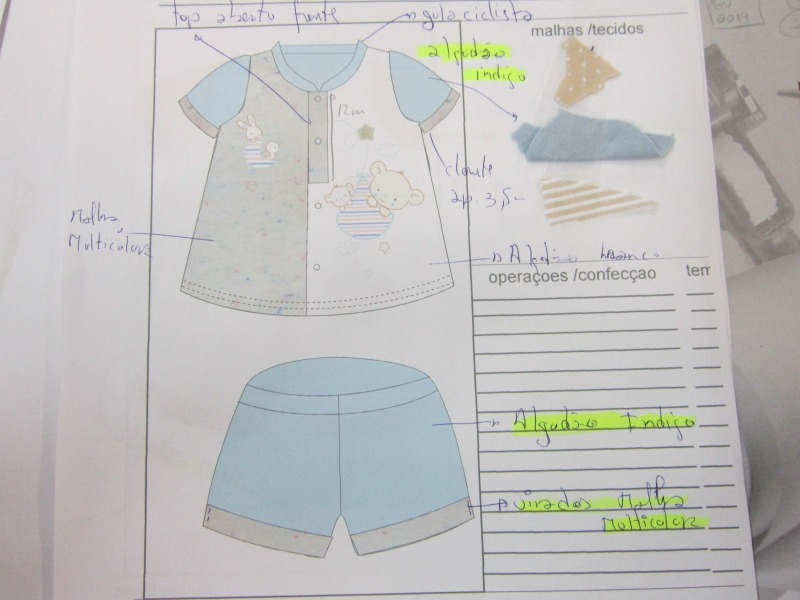 top aberto frente
gola ciclista
malhas /tecidos
algodão
indigo
12cm
Malha
Multicolore
Algodão branco
operaçoes /confecçao
Algodão Indigo
virados Malha
Multicolore
2019